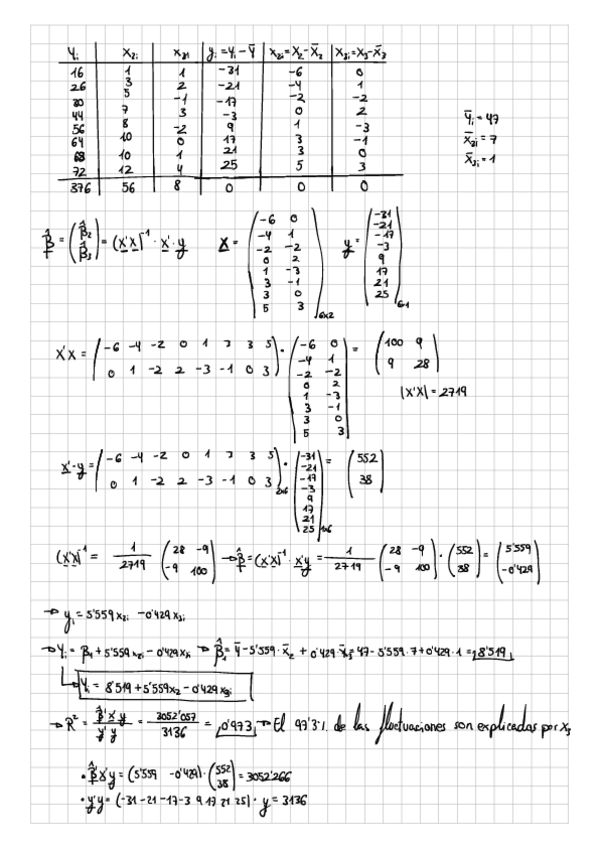 Yi X2i X3i yi = Yi - Ȳ x2i = X2 - X̄2 x3i = X3 - X̄3
16 1 1 -31 -6 0
26 3 2 -21 -4 1
30 5 -1 -17 -2 -2
44 7 3 -3 0 2
56 8 -2 9 1 -3
64 10 0 17 3 -1
68 10 1 21 3 0
72 12 4 25 5 3
376 56 8 0 0 0
Ȳi = 47
X̄2i = 7
X̄3i = 1
β̂ = (β̂2 β̂3) = (X'X)⁻¹ · X'·y X = (-6 0 / -4 1 / -2 -2 / 0 2 / 1 -3 / 3 -1 / 3 0 / 5 3)6x2 y = (-31 / -21 / -17 / -3 / 9 / 17 / 21 / 25)6x1
X'X = (-6 -4 -2 0 1 3 3 5 / 0 1 -2 2 -3 -1 0 3) · (-6 0 / -4 1 / -2 -2 / 0 2 / 1 -3 / 3 -1 / 3 0 / 5 3) = (100 9 / 9 28)
|X'X| = 2719
X'·y = (-6 -4 -2 0 1 3 3 5 / 0 1 -2 2 -3 -1 0 3)2x6 · (-31 / -21 / -17 / -3 / 9 / 17 / 21 / 25)1x6 = (552 / 38)
(X'X)⁻¹ = 1/2719 (28 -9 / -9 100) → β̂ = (X'X)⁻¹ · X'y = 1/2719 (28 -9 / -9 100) · (552 / 38) = (5'559 / -0'429)
→ yi = 5'559 x2i - 0'429 x3i
→ Yi = β1 + 5'559 x2i - 0'429 x3i → β̂1 = Ȳ - 5'559 · X̄2 + 0'429 · X̄3 = 47 - 5'559 · 7 + 0'429 · 1 = 8'519
Yi = 8'519 + 5'559 x2 - 0'429 x3i
→ R² = β̂'X'y / y'y = 3052'057 / 3136 = 0'973 → El 97'3% de las fluctuaciones son explicadas por X3
· β̂'X'y = (5'559 -0'429) · (552 / 38) = 3052'266
· y'y = (-31 -21 -17 -3 9 17 21 25) · y = 3136